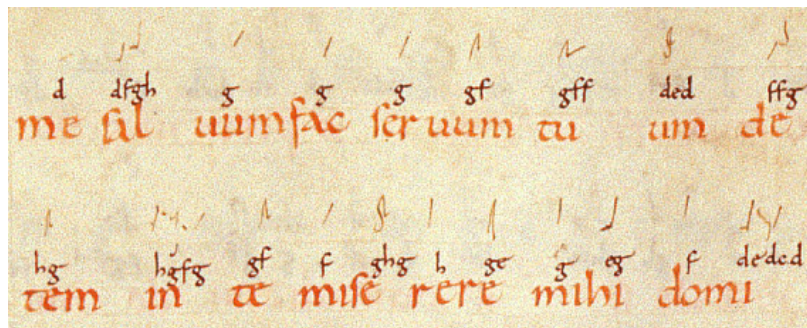 d dfgh g g g gf gff ded ffg
me sal uum fac ser uum tu um de
hg hgfg gf f ghg h ge g eg f dedcd
tem in te mise rere mihi domi